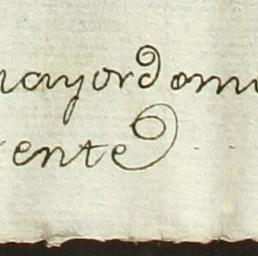 mayordomi
ente